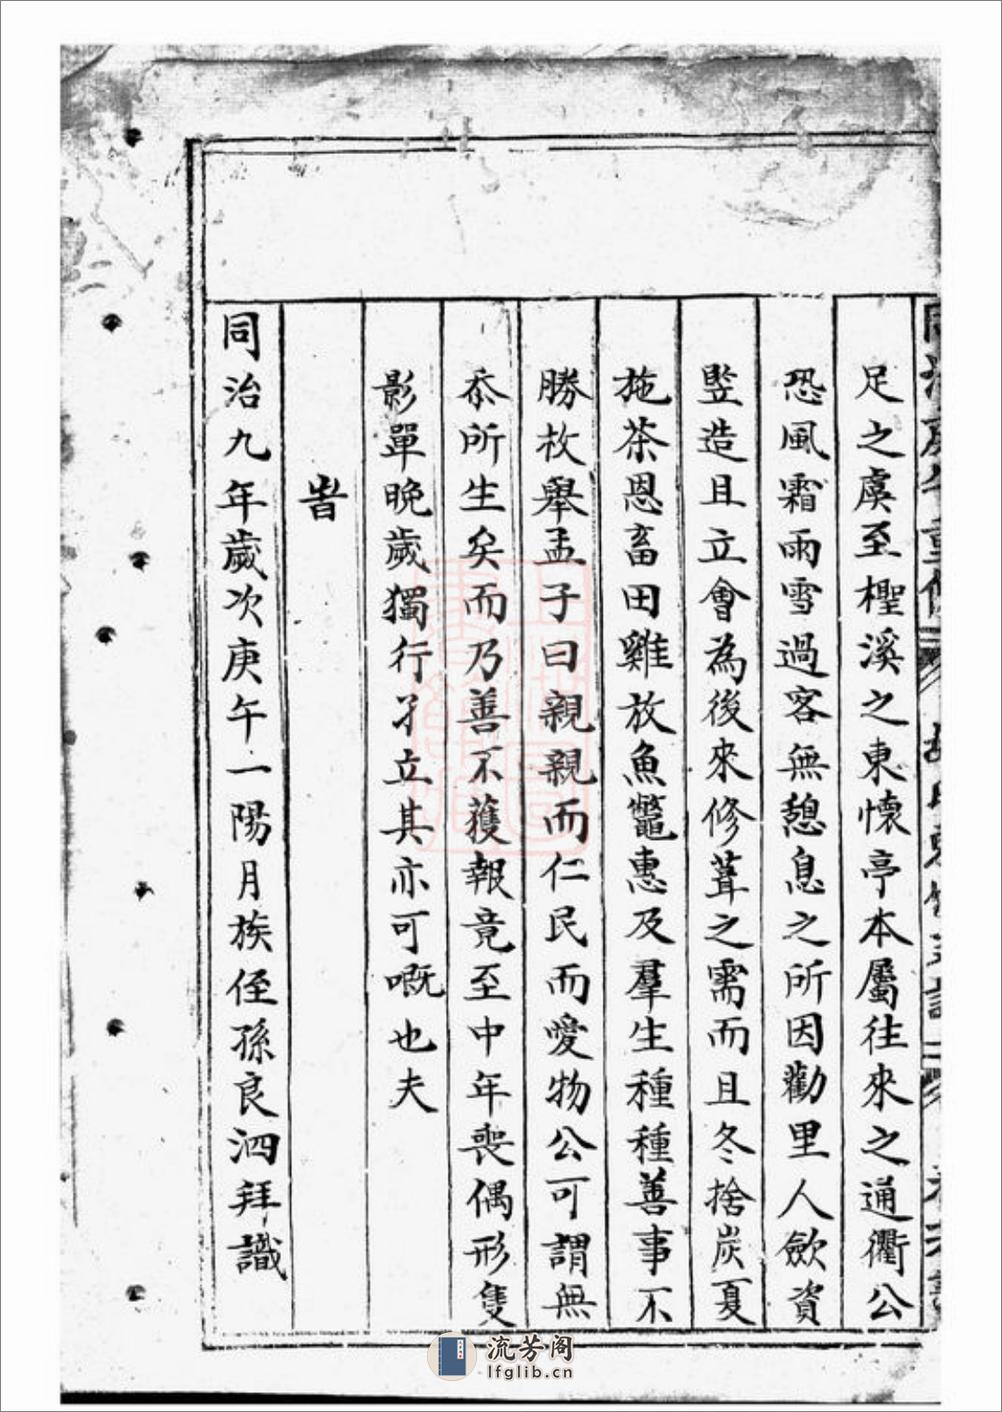 足之虞至檉溪之東懷亭本屬往來之通衢公
恐風霜雨雪過客無憩息之所因勸里人歛資
竪造且立會為後來修葺之需而且冬捨炭夏
施茶恩畜田雞放魚鼈惠及羣生種種善事不
勝枚舉孟子曰親親而仁民而愛物公可謂無
忝所生矣而乃善不獲報竟至中年喪偶形隻
影單晚歲獨行孑立其亦可嘅也夫
旹
同治九年歲次庚午一陽月族侄孫良泗拜識
流芳阁
lfglib.cn